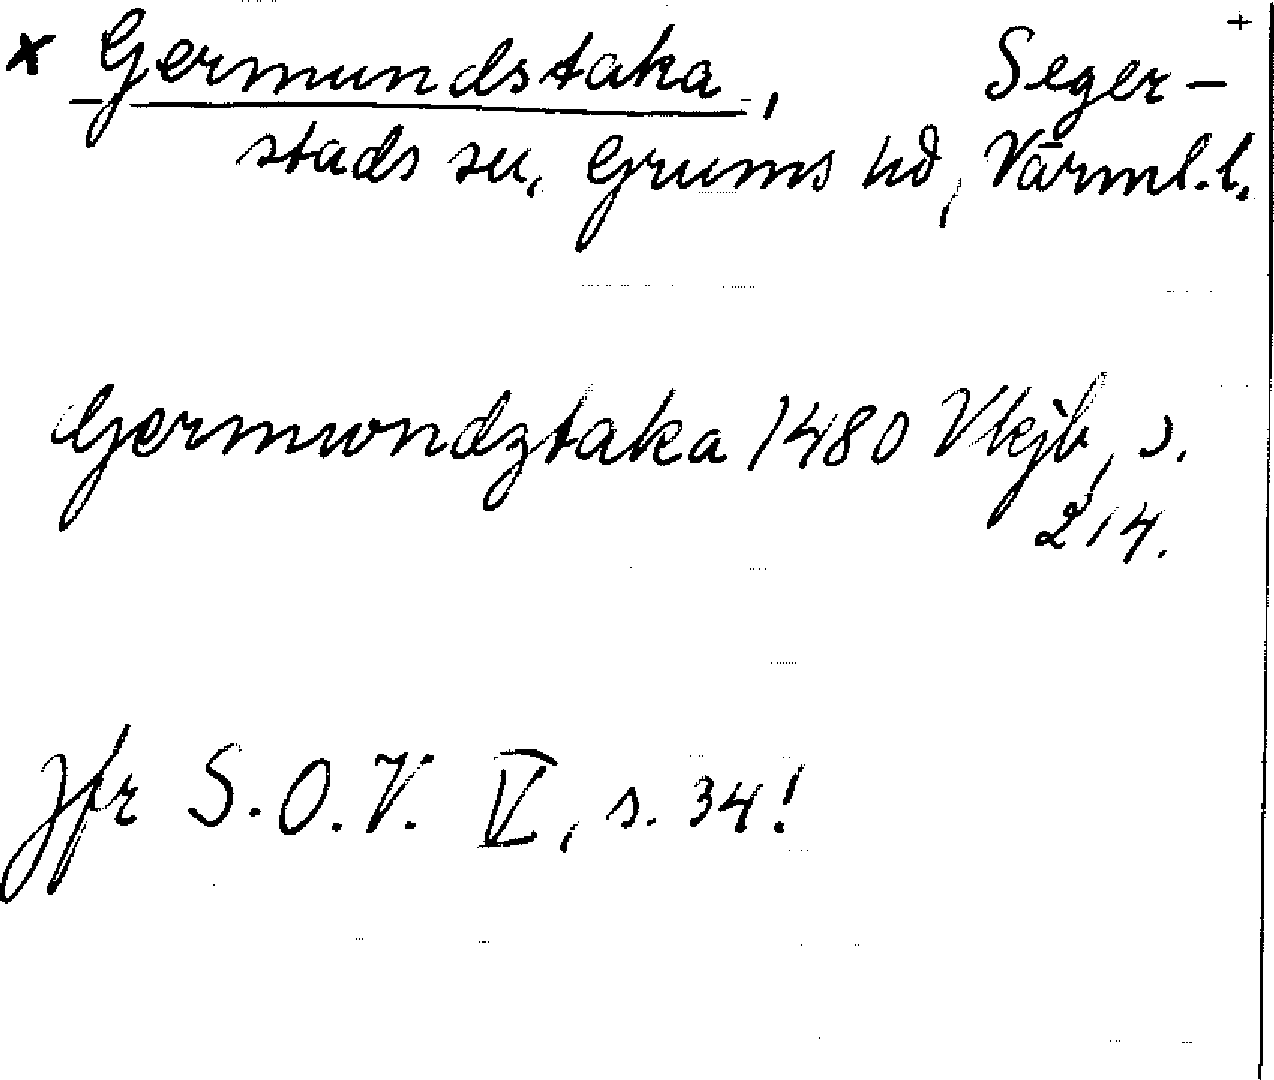 +
x Germundstaka, Seger-
stads sn, Grums hd, Värml. l.
Germwndztaka 1480 Vkjb, s.
214.
Jfr S.O.V. V, s. 34!